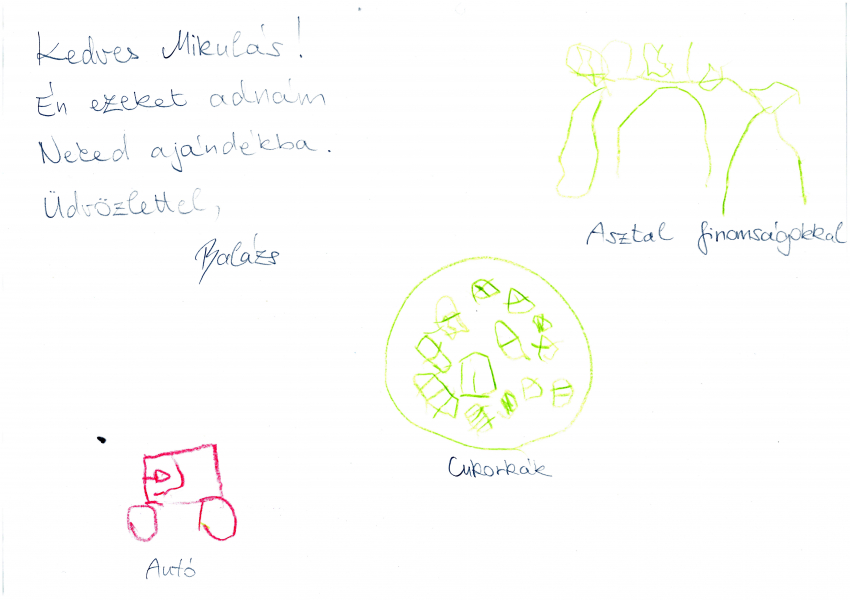 Kedves Mikulás!
Én ezeket adnám
Neked ajándékba.
Üdvözlettel,
Balázs
Asztal finomságokkal
Cukorkák
Autó